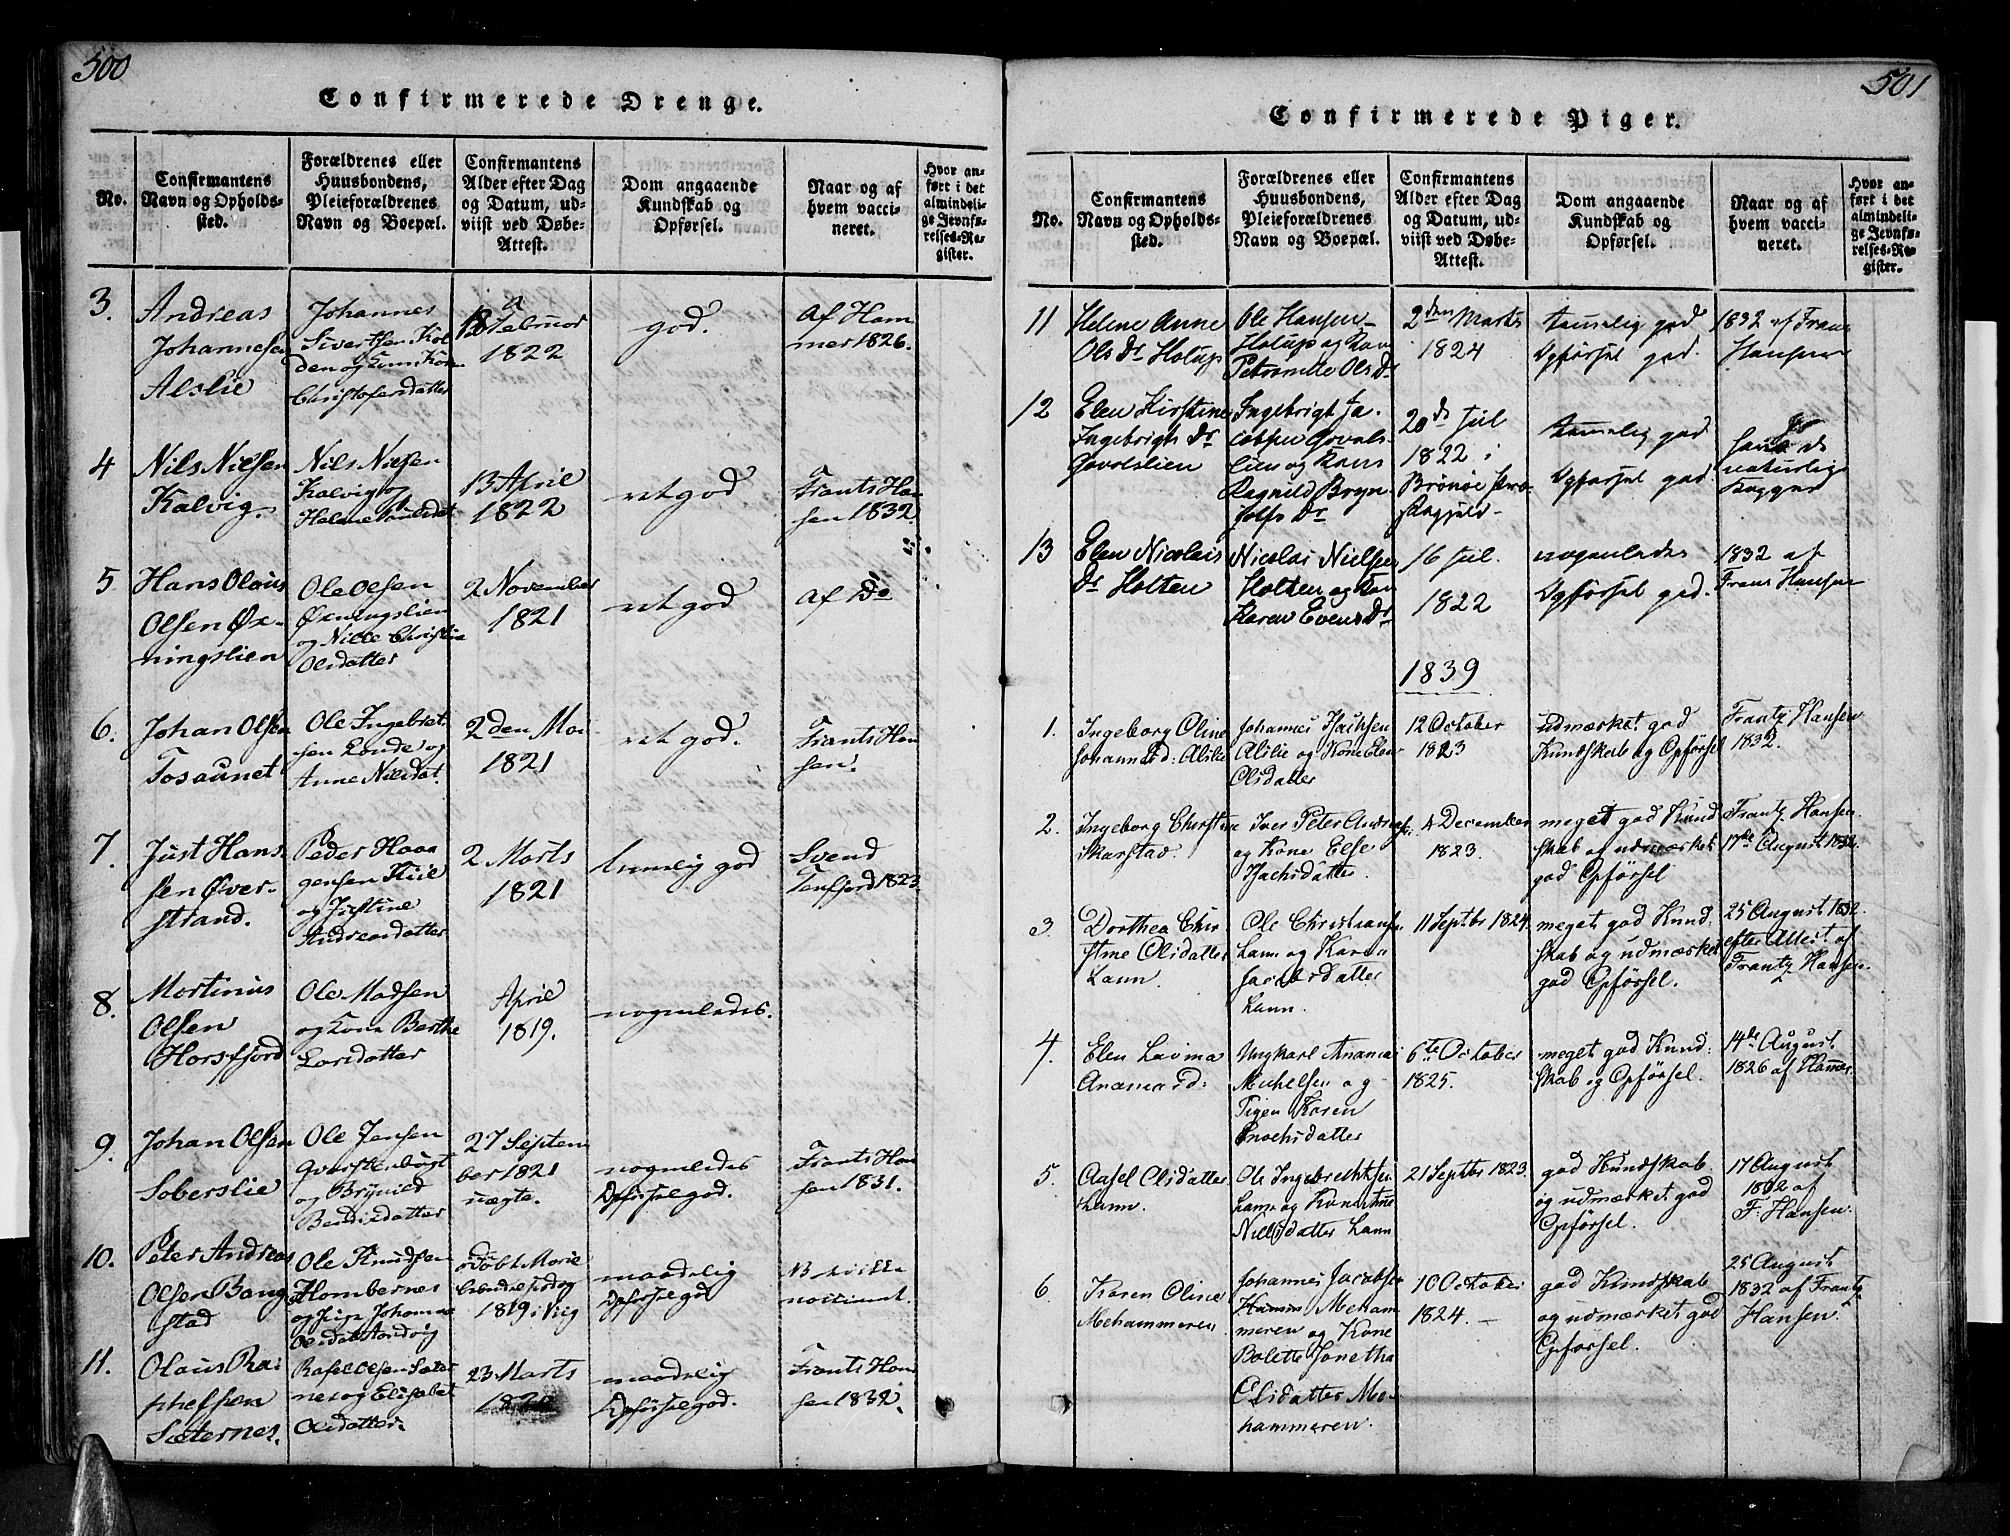 500
Confirmerede Drenge.
No.
Confirmantens
Navn og Opholds-
sted.
Forældrenes eller
Huusbondens,
Pleieforældrenes
Navn og Boepæl.
Confirmantens
Alder efter Dag
og Datum, ud-
viist ved Døbe-
Attest.
Dom angaaende
Kundskab og
Opførsel.
Naar og af
hvem vacci-
neret.
Hvor an-
ført i det
almindeli-
ge Jevnfø-
relses-Re-
gister.
3.
Andreas
Johannesen
Alslie
Johannes
Sivertsen Kol
den og Kone
Christofersdatter
18 Februar
1822
god.
Af Ham
mer 1826.
4
Nils Nielsen
Kalvig.
Nils Nielsen
Kalvig og
Helene
13 April
1822
ret god
Frants Han
sen 1832.
5
Hans Olaus
Olsen Øx-
ningslien
Ole Olsen
Øxningslien
og Nille Christin
Olsdatter
2 November
1821
ret god
Af Do
6.
Johan Olsen
Tosaunet
Ole Ingebret
sen Londe og
Anne Nilsdat.
2den Mai
1821
ret god.
Frants Han
sen.
7.
Just Hans
sen Øver-
strand.
Peder Haa
gensen
og Justine
Andreasdatter
2 Marts
1821
temlig god
Svend
Tenfjord 1823
8.
Martinus
Olsen
Horsfjord
Ole Madsen
og Kone Berthe
Larsdatter
April
1819.
nogenledes.
9.
Johan Olsen
Soberslie
Ole Jensen
og Brynild
Bendixdatter
27 Septem
ber 1821
uægte.
nogenledes
Opførsel god.
Frants Han
sen 1831.
10.
Peter Andreas
Olsen Bang
stad
Ole Knudsen
Hombernes
og Pige Johanna
døbt Marie
1819 i Viig
maadelig
Opførsel god
11.
Olaus Ra-
phelsen
Sæternes.
Rafel Olsen Sæter
nes og Elisabet
Olsdatter.
23 Marts
maadelig
Opførsel god.
Frants Han
sen 1832.
501
Confirmerede Piger.
No.
Confirmantens
Navn og Opholds-
sted.
Forældrenes eller
Huusbondens,
Pleieforældrenes
Navn og Boepæl.
Confirmantens
Alder efter Dag
og Datum, ud-
viist ved Døbe-
Attest.
Dom angaaende
Kundskab og
Opførsel.
Naar og af
hvem vacci-
neret.
Hvor an-
ført i det
almindeli-
ge Jevnfø-
relses-Re-
gister.
11
Helene Anne
Ols Dr Holup
Ole Hansen
Holup og Kone
Petronelle Ols Dr
2den Marts
1824
temmelig god
Opførsel god.
1832 af Frans
Hansen
12
Elen Kirstine
Ingebrigts Dr
Govolslien
Ingebrigt Ja-
cobsen Govols-
lien og Kone
Ragnild Bryn-
jolfs Dr
20de Jul
1822 i
Brønøe Præ
stegjeld
temmelig god
Opførsel god
havt de
naturlige
Kopper
13
Elen Nicolais
Dr Holten
Nicolai Nielsen
Holten og Kone
Karen Evens Dr
16 Jul.
1822
nogenledes
Opførsel god.
1832 af
Frans Hansen
1839
1.
Ingeborg Oline
Johannesd: Alslie
Johannes Isachsen
Alslie og Kone Elen
Olsdatter
12 October
1823
udmærket god
Kundskab og Opførsel
Frantz Hansen
1832.
2.
Ingeborg Chirstine
Skarstad.
Iver Peter Andreas:
og Kone Else
Isachsdatter.
4 December
1823.
meget god Kund
skab og udmærket
god Opførsel
Frantz Hansen
17de August 1832.
3.
Dorthea Chir
stine Olsdatter
Lann.
Ole Christiansen
Lann og Karen
Jacobsdatter
Lann.
11 Septbr 1824.
meget god Kund
skab og udmærket
god Opførsel.
25 August 1832.
efter Attest af
Frantz Hansen.
4.
Elen Lavina
Ananiasd:
Ungkarl Ananias
Michelsen og
Pigen Karen
Enochsdatter
6te October
1825.
meget god Kund:
skab og Opførsel.
14de August
1826 af Hamer.
5.
Aasel Olsdatter
Lann.
Ole Ingebrechtsen
Lann og Kone Stine
Nillsdatter Lann
21 Septbr 1823.
god Kundskab
og udmærket god
Opførsel.
17 August
1832 af
F. Hansen.
6.
Karen Oline
Mehammeren.
Johannes Jacobsen
Meham
meren og Kone
Bolette Jonetha
Elisdatter Me-
hammeren.
10 October
1824.
god Kundskab
og udmærket god
Opførsel.
25 August
1832 af Frantz
Hansen.